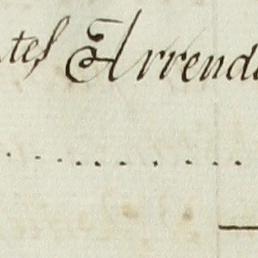 tes Arrend